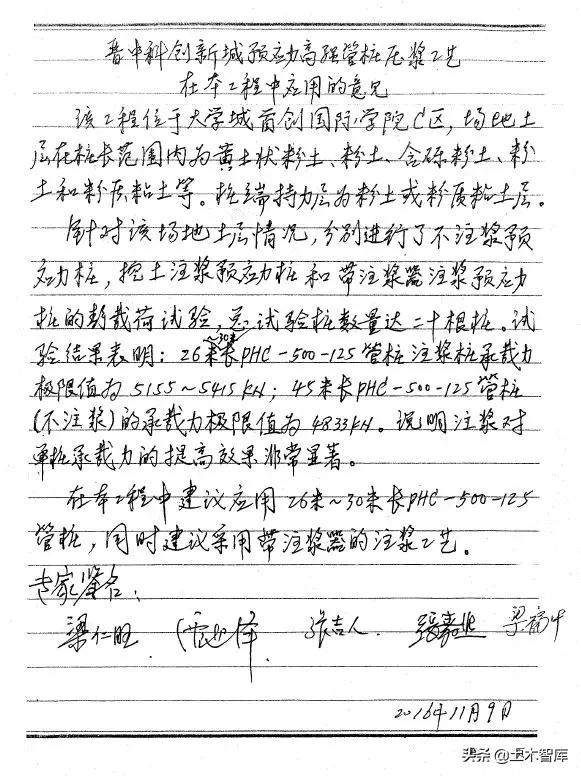 晋中科创新城预应力高强管桩压浆工艺
在本工程中应用的意见
该工程位于大学城首创国际学院C区，场地土
层在桩长范围内为黄土状粉土、粉土、含砾粉土、粉
土和粉质粘土等。桩端持力层为粉土或粉质粘土层。
针对该场地土层情况，分别进行了不注浆预
应力桩，挖土注浆预应力桩和带注浆器注浆预应力
桩的静载荷试验，总试验桩数量达二十根桩。试
验结果表明：26米~30米长PHC-500-125管桩注浆桩承载力
极限值为5155~5415KN；45米长PHC-500-125管桩
(不注浆)的承载力极限值为4833KN。说明注浆对
单桩承载力的提高效果非常显著。
在本工程中建议应用26米~30米长PHC-500-125
管桩，同时建议采用带注浆器的注浆工艺。
专家签名：
梁仁旺
2016年11月9日
头条@土木智库